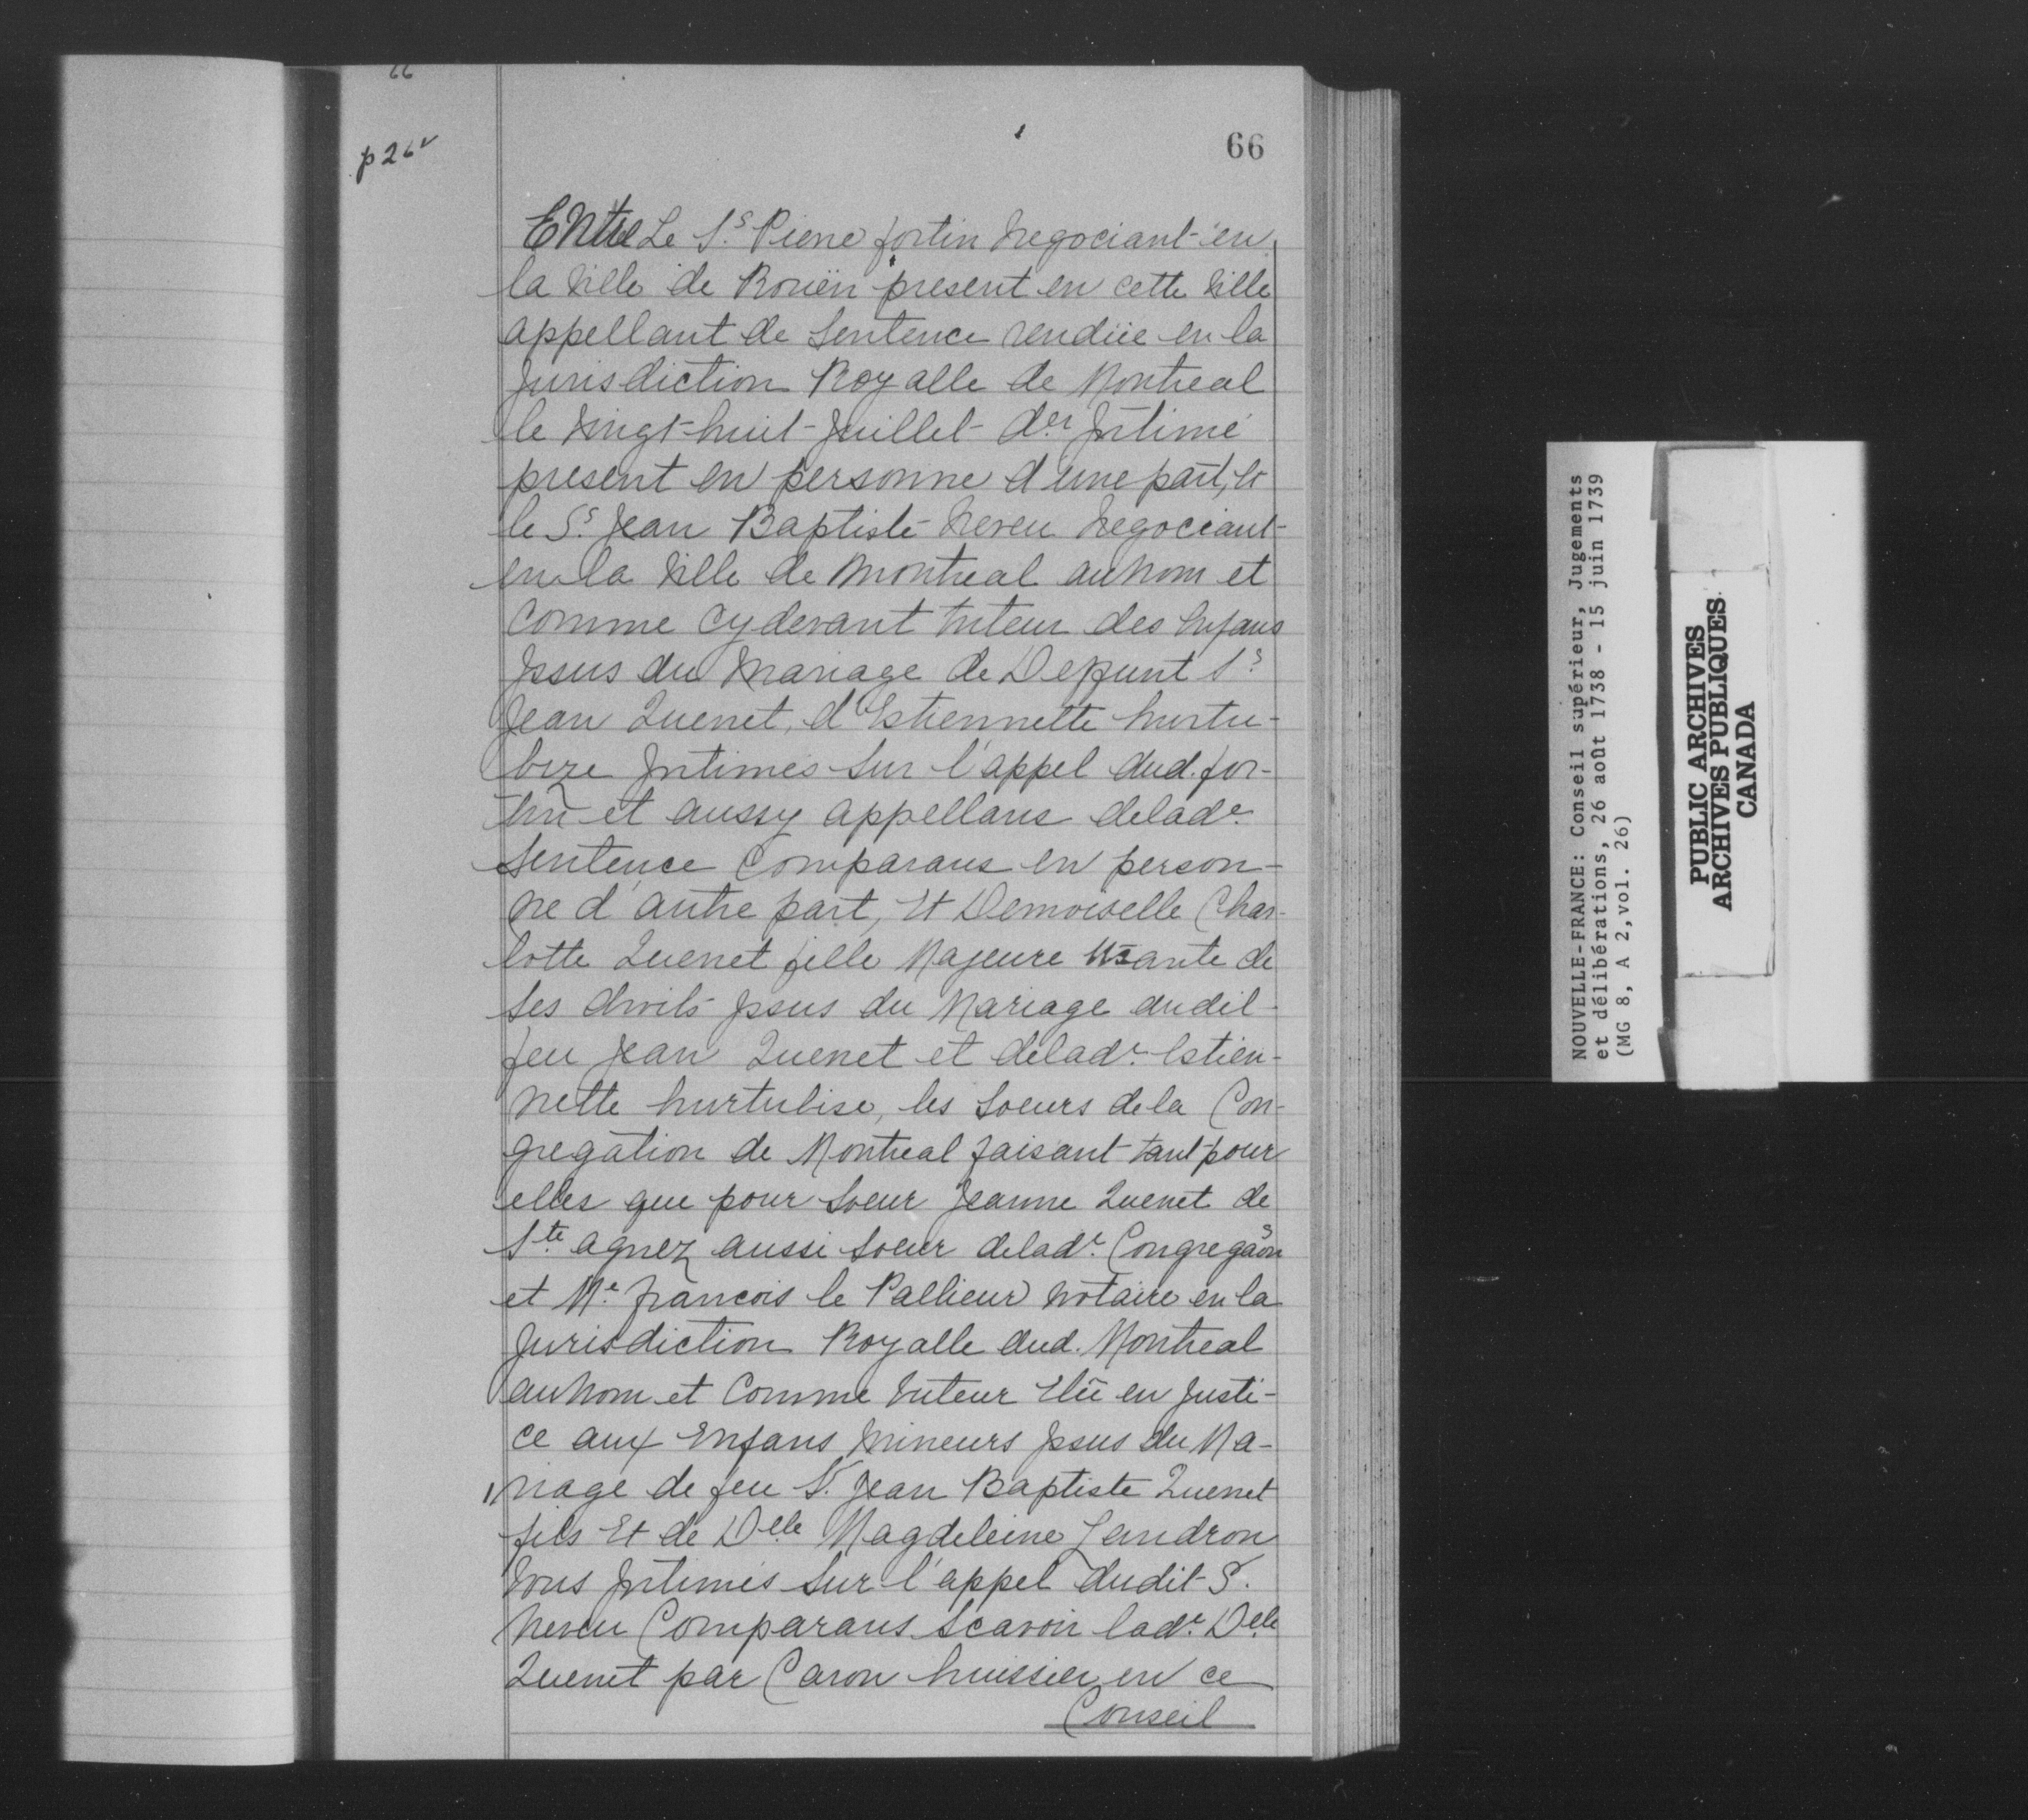 66
p 26v
66
Entre Le Sr. Pierre fortin Negociant en
la Ville de Roüen present en cette Ville
appellant de Sentence rendüe en la
Jurisdiction Royalle de Montreal
le Vingt-huit Juillet der Jntimé
present en personne d'une part, et
le Sr. Jean Baptiste Neveu Negociant
en la Ville de Montreal au nom et
Comme Cydevant tuteur des Enfans
Jssus du Mariage de Deffunt Sr.
Jean Quenet, d'Estiennette hurtu-
bize Jntimés Sur l'appel dud. for-
tin et aussy appellans delade.
Sentence Comparans en person-
ne d'autre part, Et Demoiselle Char-
lotte Quenet fille Majeure Usante de
Ses droits Jssus du Mariage dudit
feu Jean Quenet et delade. Estien-
nette hurtubise, les Soeurs de la Con-
gregation de Montreal faisant tant pour
elles que pour Soeur Jeanne Quenet de
Ste. agnez aussi Soeur delade. Congregaõn
et Me. francois le Pallieur Notaire en la
Jurisdiction Royalle dud. Montreal
au Nom et Comme tuteur Elû en Justi-
ce aux Enfans Mineurs Jssus du Ma-
riage de feu Sr. Jean Baptiste Quenet
fils Et de Delle Magdeleine Landron
tous Jntimés Sur l'appel dudit Sr.
Neveu Comparans Scavoir lade. Delle
Quenet par Caron huissier en ce
Conseil
NOUVELLE-FRANCE: Conseil supérieur, Jugements
et délibérations, 26 août 1738 - 15 juin 1739
(MG 8, A 2,vol. 26)
PUBLIC ARCHIVES
ARCHIVES PUBLIQUES
CANADA